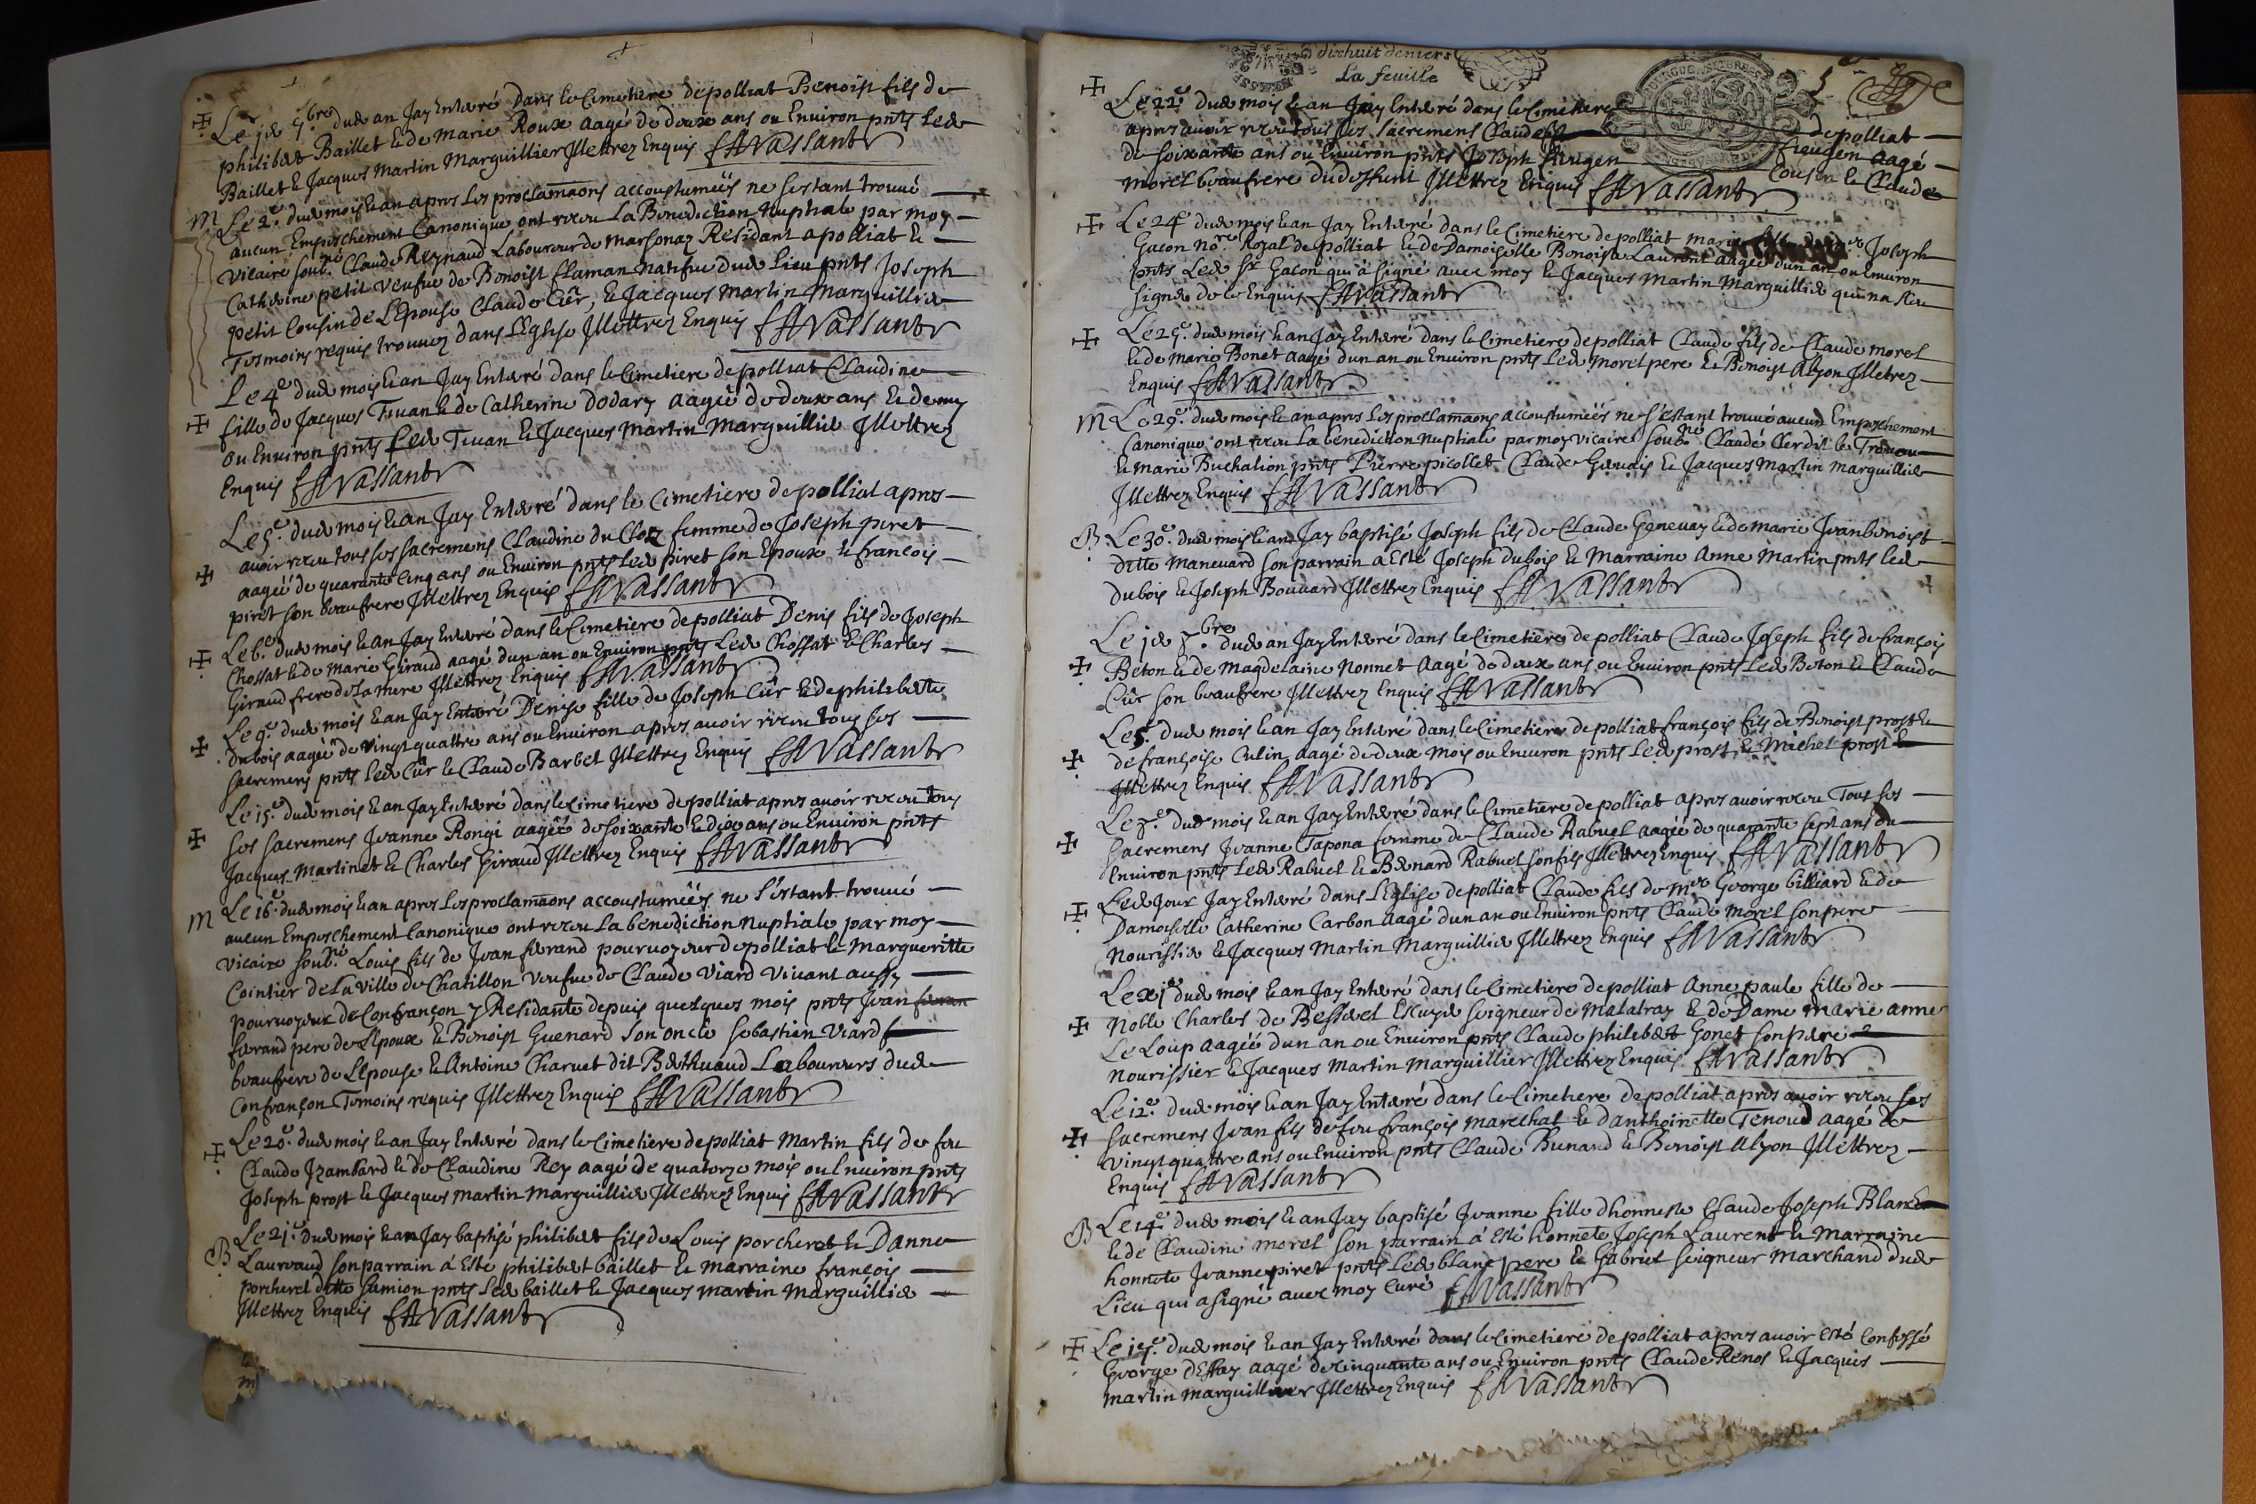 Le 1er 7.bre dud an Jay Enterré Dans le Cimetiere de polliat Benoist fils de
philibert Baillet & de Marie Roux aagé de deux ans ou Environ pnts led
Baillet & Jacques Martin Marguillier Illettrez Enquis f A Vassant
M Le 2.e dud mois & an apres Les proclamaons accoustumées ne sestant trouvé
aucun Empeschement Canonique ont receu La Benediction Nuptiale par moy
Vicaire soub.né Claude Reynaud Laboureur de Marsonaz Residant a polliat &
Catherine petit veufue de Benoist flaman Natifue dud Lieu pnts Joseph
petit Cousin de L'Epouse Claude Cier, & Jacques Martin Marguillier
Tesmoins requis trouvez dans L'Eglise Illettrez Enquis f A Vassant
Le 4.e dud mois & an Jay Enterré dans le Cimetiere de polliat Claudine
fille de Jacques Tivan & de Catherine Dodary aagée de deux ans & demy
ou Environ pnts led Tivan & Jacques Martin Marguillier Illettrez
Enquis f A Vassant
Le 5.e dud mois & an Jay Enterré dans le Cimetiere de polliat apres
avoir receu tous ses sacremens Claudine du Cloz femme de Joseph piret
aagée de quarante Cinq ans ou Environ pnts led piret son Epoux & françois
piret son beaufrere Illettrez Enquis f A Vassant
Le 6.e dud mois & an Jay Enterré dans le Cimetiere de polliat Denis fils de Joseph
Chossat & de Marie Giraud aagé dun an ou Environ pnts led Chossat & Charles
Giraud frere de La mere Illettrez Enquis f A Vassant
Le 9.e dud mois & an Jay Enterré Denise fille de Joseph Cür & de philiberte
Dubois aagée de vingt quattre ans ou Environ apres avoir receu tous ses
sacremens pnts led Cür & Claude Barbet Illettrez Enquis f A Vassant
Le 15.e dud mois & an Jay Enterré dans le Cimetiere de polliat apres avoir receu tous
ses sacremens Jeanne Rongi aagée de soixante & dix ans ou Environ pnts
Jacques Martinet & Charles Giraud Illettrez Enquis f A Vassant
M Le 16.e dud mois & an apres Les proclamaons accoustumées ne s'estant trouvé
aucun Empeschement Canonique ont receu La benediction Nuptiale par moy
vicaire soub.né Louis fils de Jean ferand pourvoyeur de polliat & Marguerite
Cointier de La ville de Chatillon veufue de Claude Viard Vivant aussy
pourvoyeur de Confrançon y Residante depuis quelques mois pnts Jean feran
ferand pere de L'Epoux & Benoist Guenard son oncle Sebastien Viard
beaufrere de L'Epouse & Antoine Charvet dit Bethuaud Laboureurs dud
Confrançon Temoins requis Illettrez Enquis f A Vassant
Le 20.e dud mois & an Jay Enterré dans le Cimetiere de polliat Martin fils de feu
Claude Jzambard & de Claudine Rey aagé de quatorze mois ou Environ pnts
Joseph prost & Jacques Martin Marguillier Illettrez Enquis f A Vassant
B Le 21.e dud mois & an Jay baptisé philibert fils de Louis porcheret & Danne
Laurvaud son parrain á Esté philibert baillet & marraine françois
porcheret ditte Samion pnts led baillet & Jacques martin Marguillier
Illettrez Enquis f A Vassant
dixhuit deniers
La feuille
Le 22.e dud mois & an Jay Enterré dans le Cimetiere de polliat
apres avoir receu tous ses sacremens Claude fieugen aagé
de soixante ans ou Environ pnts Joseph fieugen Cousin & Claude
Morel beaufrere dudeffunt Illettrez Enquis f A Vassant
Le 24.e dud mois & an Jay Enterré dans le Cimetiere de polliat Marie Joseph
Gacon No.re Royal de polliat & de Damoiselle Benoiste Laurent aagée dun an ou Environ
pnts Led Sr Gacon qui á signé avec moy & Jacques Martin Marguillier qui na sceu
signer de ce Enquis f A Vassant
Le 25.e dud mois & an Jay Enterré dans le Cimetiere de polliat Claude fils de Claude morel
& de Marie Bonet aagé dun an ou Environ pnts Led Morel pere & Benoist Alyon Illetrez
Enquis f A Vassant
M Le 29.e dud mois & an apres Les proclamaons accoustumées ne s'estant trouvé aucun Empeschement
Canonique ont receu La benediction Nuptiale par moy Vicaire soub.né Claude Clerdit &
& Marie Buchalion pnts Pierre picollet Claude Gervais & Jacques Martin Marguillier
Illettrez Enquis f A Vassant
B Le 30.e dud mois & an Jay baptisé Joseph fils de Claude Genevay & de Marie Jvanbenoist
ditte Maneuard son parrain a Esté Joseph Dubois & Marraine Anne Martin pnts led
dubois & Joseph Bouvard Illettrez Enquis f A Vassant
Le 1er 8.bre dud an Jay Enterré dans le Cimetiere de polliat Claude Joseph fils de françois
Beton & de Magdelaine Nonnet aagé de deux ans ou Environ pnts Led Beton & Claude
Cür son beaufrere Illettrez Enquis f A Vassant
Le 5.e dud mois & an Jay Enterré dans le Cimetiere de polliat françois fils de Benoist prost &
de françoise Culin aagé de deux mois ou Environ pnts Led prost & Michel prost
Illettrez Enquis f A Vassant
Le 8.e dud mois & an Jay Enterré dans le Cimetiere de polliat apres avoir receu Tous ses
sacremens Jeanne Tapona femme de Claude Rabuel aagée de quarante sept ans ou
Environ pnts Led Rabuel & Bernard Rabuel son fils Illettrez Enquis f A Vassant
Led Jour Jay Enterré dans L'Eglise de polliat Claude fils de M.re George billiard & de
Damoiselle Catherine Carbon aagé dun an ou Environ pnts Claude Morel son pere
Nourissier & Jacques Martin Marguillier Illettrez Enquis f A Vassant
Le xi.e dud mois & an Jay Enterré dans le Cimetiere de polliat Anne paule fille de
Noble Charles de Besserel Escuyer seigneur de Malatray & de Dame Marie anne
Le Loup aagée dun an ou Environ pnts Claude philibert Gonet son pere
Nourissier & Jacques Martin Marguillier Illettrez Enquis f A Vassant
Le 12.e dud mois & an Jay Enterré dans le Cimetiere de polliat apres avoir receu ses
sacremens Jean fils de feu françois Marechal & danthoinette Tenoud aagé de
vingt quattre ans ou Environ pnts Claude Bunard & Benoist Alyon Illettrez
Enquis f A Vassant
B Le 14.e dud mois & an Jay baptisé Jeanne fille dhonneste Claude Joseph Blanc
& de Claudine Morel son parrain á Esté honnete Joseph Laurent & Marraine
honnete Jeanne piret pnts Led blanc pere & Gabriel seigneur Marchand dud
Lieu qui a signé avec moy Curé f A Vassant
Le 15.e dud mois & an Jay Enterré dans le Cimetiere de polliat apres avoir esté Confessé
George dEffay aagé de cinquante ans ou Environ pnts Claude Renos & Jacques
Martin Marguillier Illettrez Enquis f A Vassant